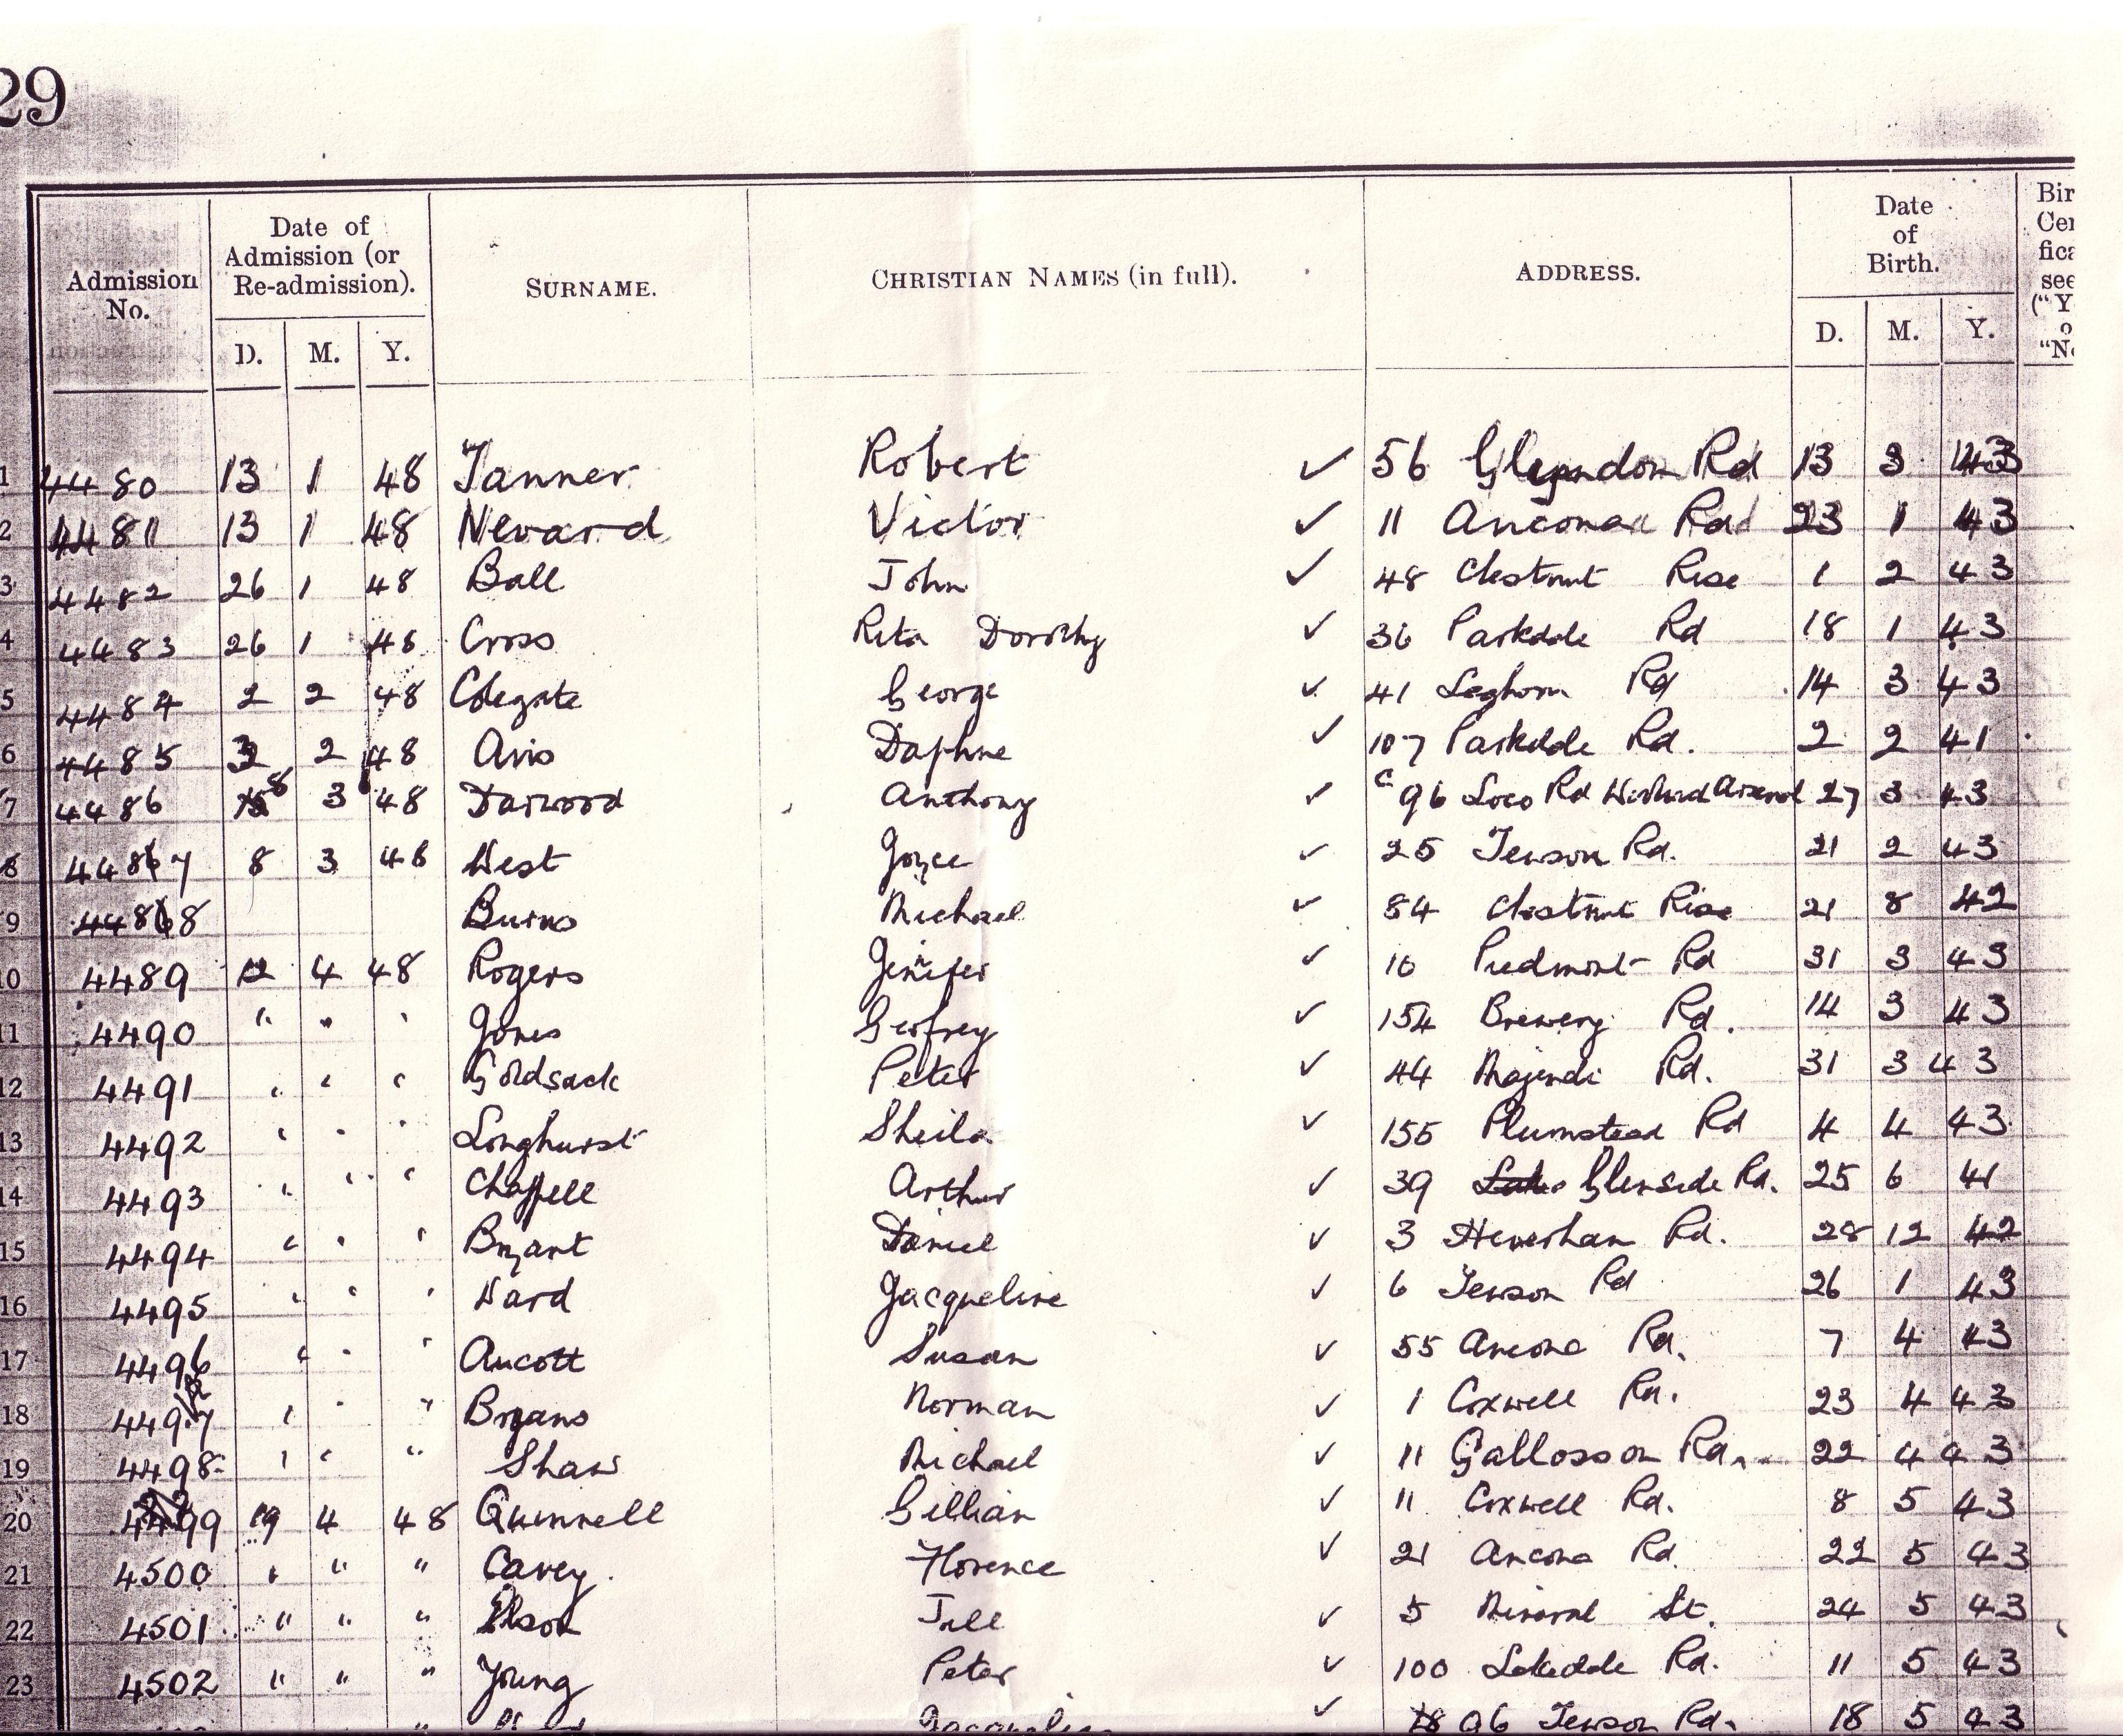 29
Admission No. Date of Admission (or Re-admission). SURNAME. CHRISTIAN NAMES (in full). ADDRESS. Date of Birth.
D. M. Y. D. M. Y.
1 4480 13 1 48 Tanner Robert ✓ 56 Glendon Rd 13 3 43
2 4481 13 1 48 Nevard Victor ✓ 11 Ancona Rd 23 1 43
3 4482 26 1 48 Ball John ✓ 48 Chestnut Rise 1 2 43
4 4483 26 1 48 Cross Rita Dorothy ✓ 36 Parkdale Rd 18 1 43
5 4484 2 2 48 Colegate George ✓ 41 Leghorn Rd 14 3 43
6 4485 2 48 Avis Daphne ✓ 107 Parkdale Rd. 2 2 41
7 4486 8 3 48 Darwood Anthony ✓ C 96 Loco Rd Arsenal 27 3 43
8 4487 8 3 48 West Joyce ✓ 25 Tewson Rd. 21 2 43
9 4488 Burns Michael ✓ 84 Chestnut Rise 21 8 42
10 4489 12 4 48 Rogers Jenifer ✓ 10 Piedmont Rd 31 3 43
11 4490 " " " Jones Geofrey ✓ 154 Brewery Rd. 14 3 43
12 4491 " " " Goldsack Peter ✓ 44 Majendi Rd. 31 3 43
13 4492 " " " Longhurst Sheila ✓ 155 Plumstead Rd 4 4 43
14 4493 " " " Chappell Arthur ✓ 39 Glenside Rd. 25 6 41
15 4494 " " " Bryant Daniel ✓ 3 Heverham Rd. 28 12 42
16 4495 " " " Ward Jacqueline ✓ 6 Tewson Rd 26 1 43
17 4496 " " " Aucott Susan ✓ 55 Ancona Rd. 7 4 43
18 4497 " " " Bryans Norman ✓ 1 Coxwell Rd. 23 4 43
19 4498 " " " Shaw Michael ✓ 11 Gallosson Rd. 22 4 43
20 4499 19 4 48 Quinnell Gillian ✓ 11 Coxwell Rd. 8 5 43
21 4500 " " " Cavey Florence ✓ 21 Ancona Rd. 22 5 43
22 4501 " " " Elson Jill ✓ 5 Mineral St. 24 5 43
23 4502 " " " Young Peter ✓ 100 Lakedale Rd. 11 5 43
" Jacqueline ✓ 96 Tewson Rd. 18 5 43